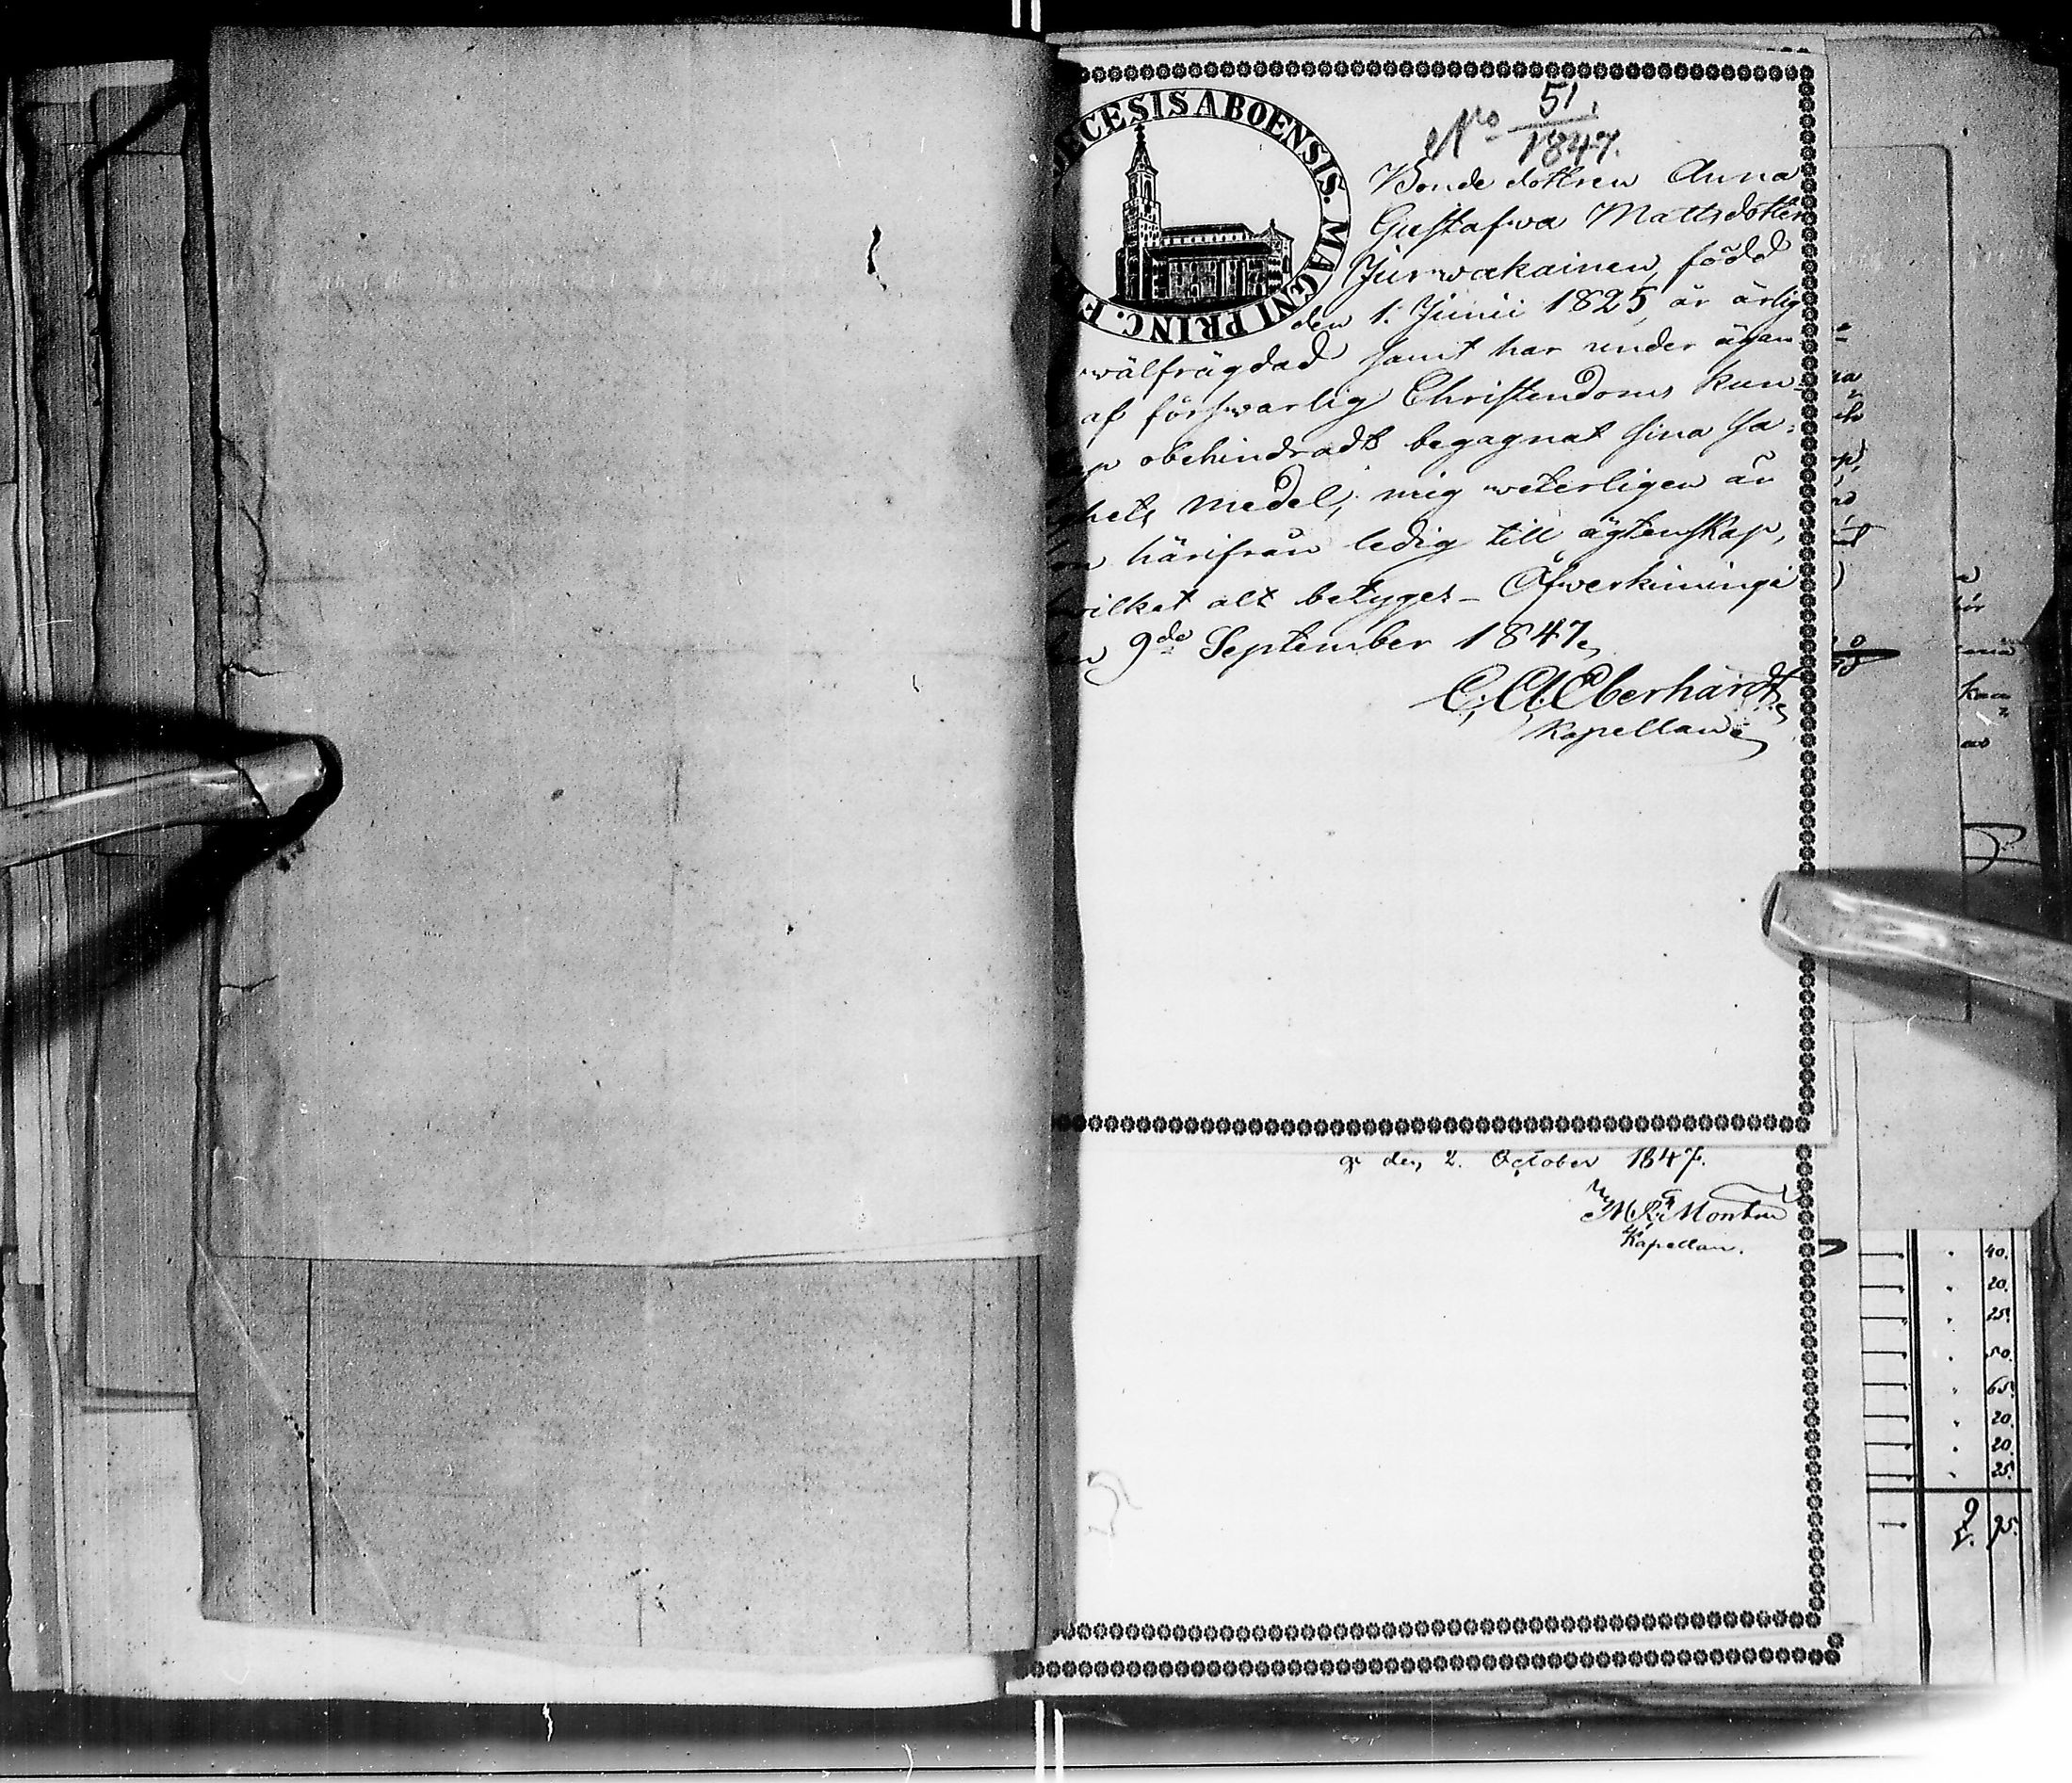 ECESIS ABOENSIS. MAGNI PRINC. F
No 51.
1847.
Bonde dottren Anna
Gustafwa Mattsdotter
Jurwakainen, född
den 1. Junii 1825, är ärlig
wälfrägdad samt har under ägan
af förswarlig Christendoms kun-
obehindradt begagnat sina sa-
hets medel; mig weterligen är
on härifrån ledig till ägtenskap,
wilket alt betyges - Öfwerkiminge
9de September 1847
C. A. Eberhardt
Kapellan
den 2. October 1847.
Kapellan.
40.
20.
25.
50.
65.
20.
20.
25.
9 95.